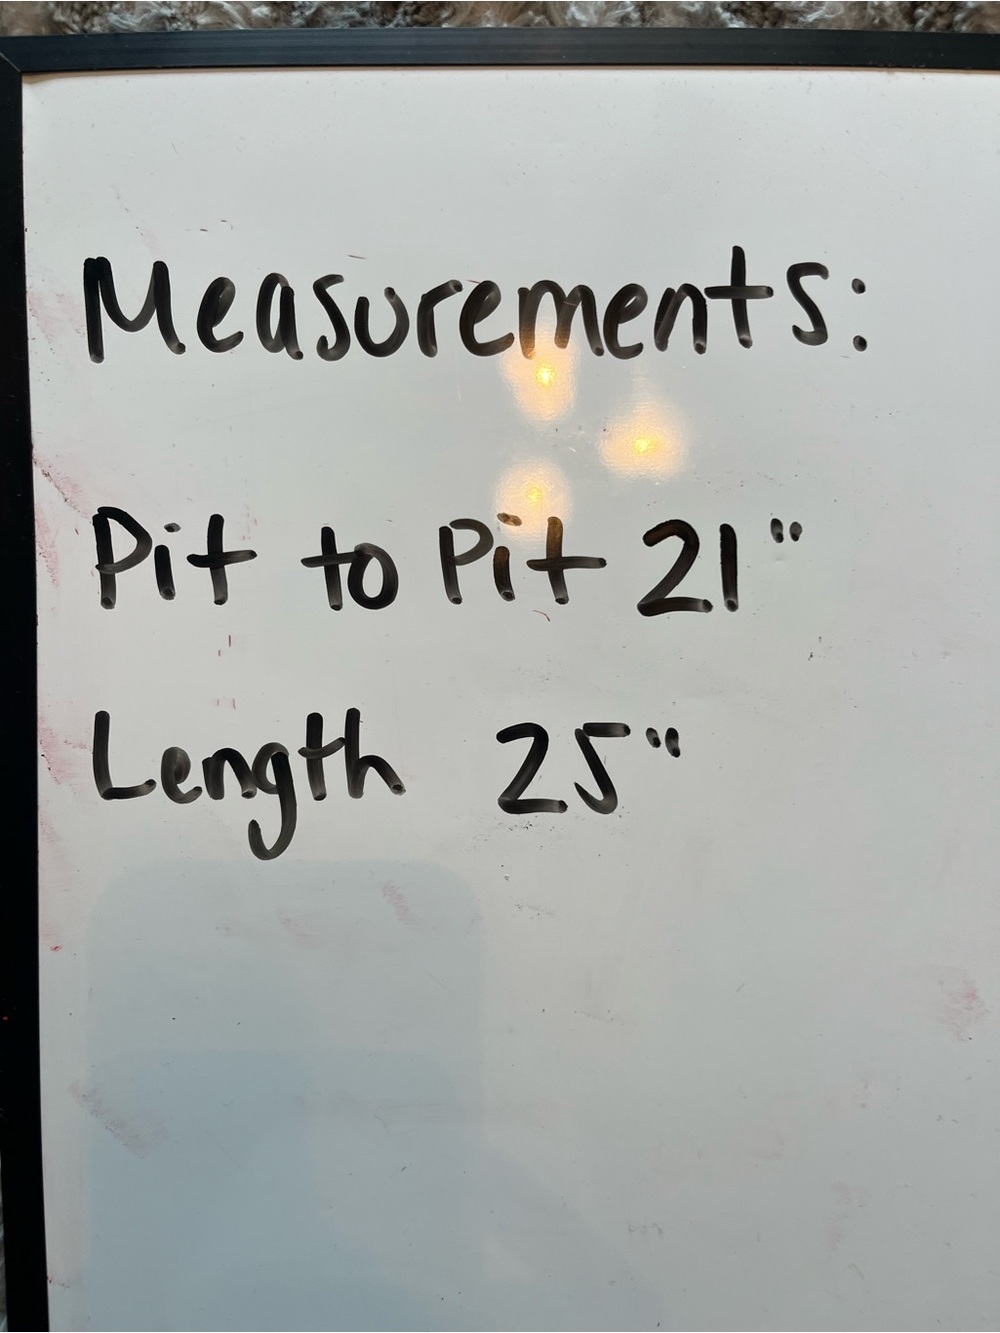 Measurements:
Pit to Pit 21"
Length 25"